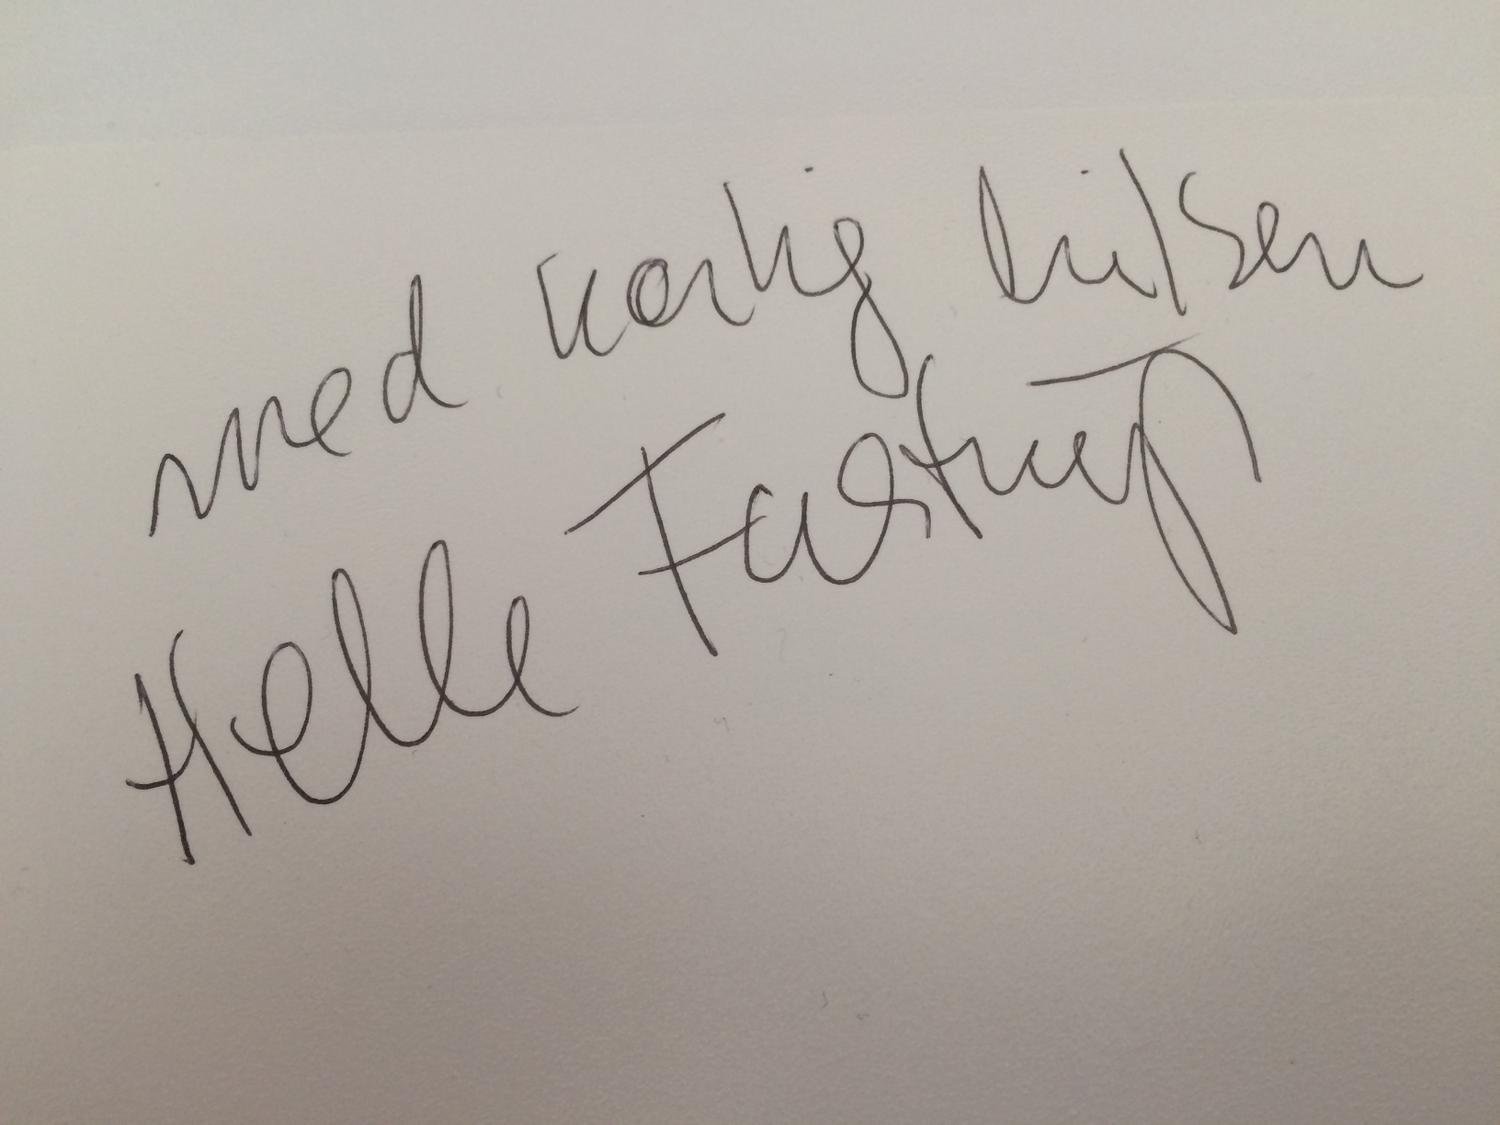 med venlig hilsen
Helle Fastrup